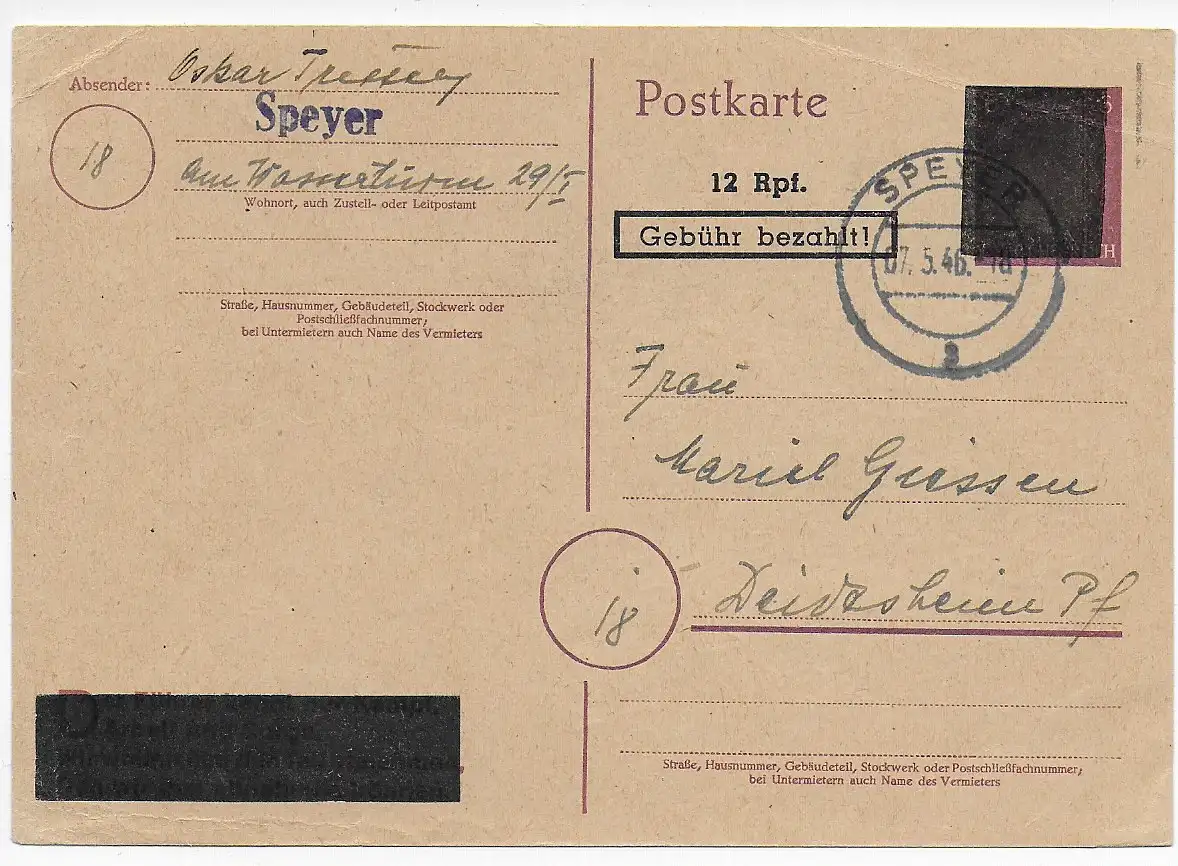 Absender: Oskar
Speyer
18
am Wasserturm 29/I
Wohnort, auch Zustell- oder Leitpostamt
Straße, Hausnummer, Gebäudeteil, Stockwerk oder
Postschließfachnummer;
bei Untermietern auch Name des Vermieters
Postkarte
6
12 Rpf.
Gebühr bezahlt!
CH
SPEYER
07.5.46.
a
Frau
Giessen
18
Deidesheim Pf
Straße, Hausnummer, Gebäudeteil, Stockwerk oder Postschließfachnummer;
bei Untermietern auch Name des Vermieters